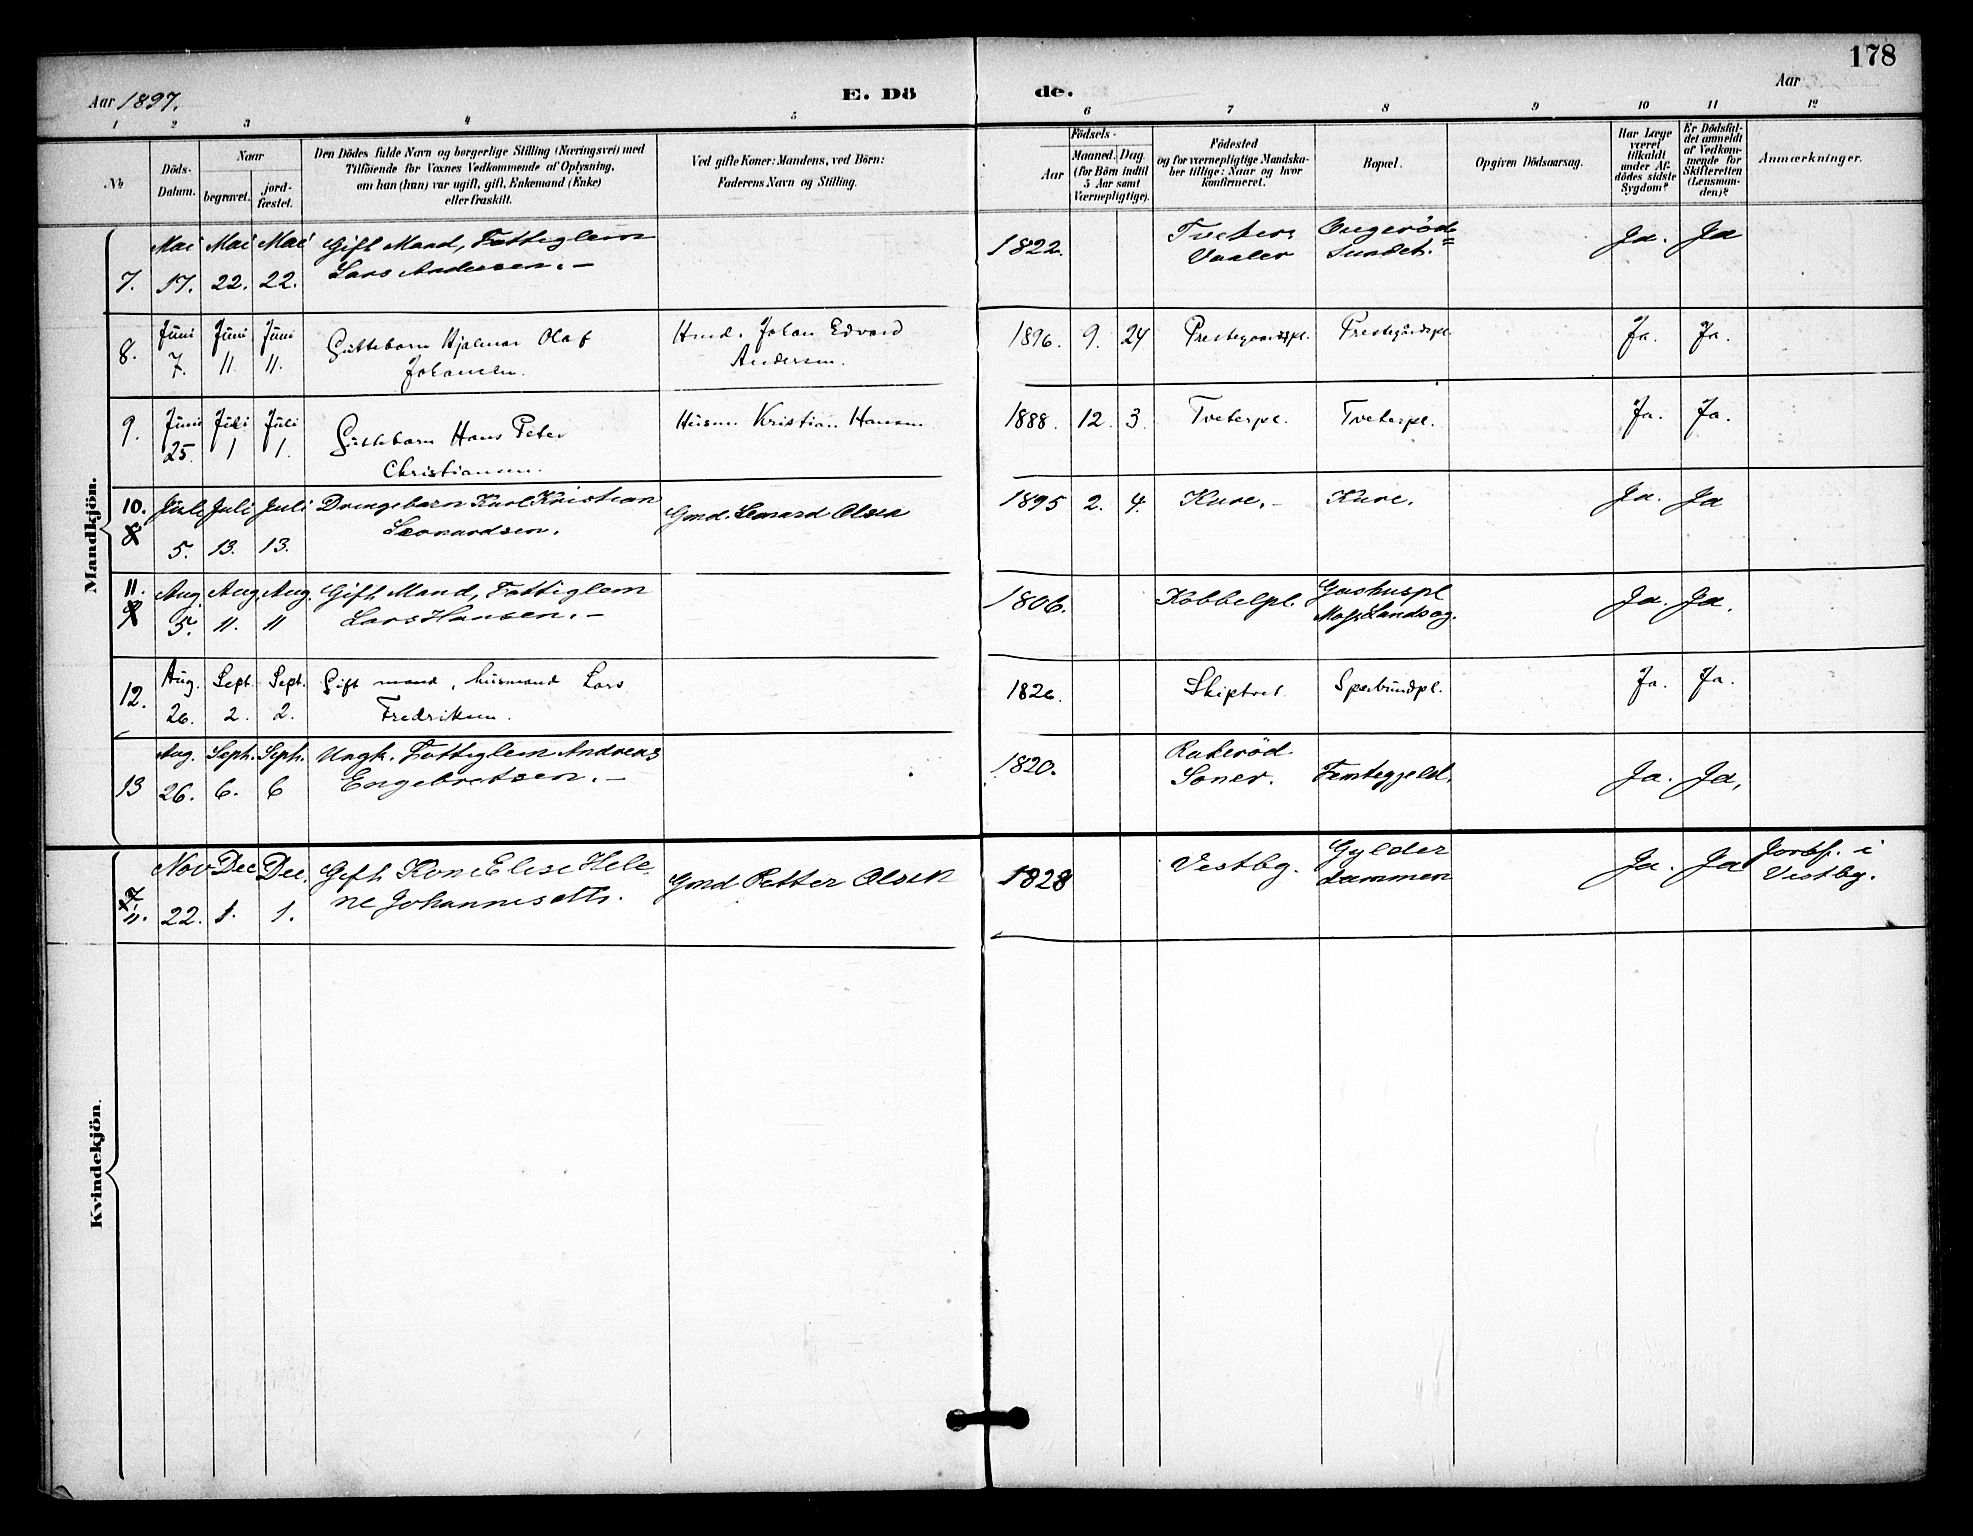 178
Aar 1897.
E. Dö
de.
Aar
1 2 3 4 5 6 7 8 9 10 11 12
No
Döds-
Datum.
Naar
begravet.
jord-
fæstet.
Den Dödes fulde Navn og borgerlige Stilling (Næringsvei) med
Tilföiende for Voxnes Vedkommende af Oplysning,
om han (hun) var ugift, gift, Enkemand (Enke)
eller fraskilt.
Ved gifte Koner: Mandens, ved Börn:
Faderens Navn og Stilling.
Födsels-
Aar
Maaned. Dag.
(for Börn indtil
5 Aar samt
Værnepligtige).
Födested
og for værnepligtige Mandska-
ber tillige: Naar og hvor
konfirmeret.
Bopæl.
Opgiven Dödsaarsag.
Har Læge
været
tilkaldt
under Af-
dödes sidste
Sygdom?
Er Dödsfal-
det anmeldt
af Vedkom-
mende for
Skifteretten
(Lensman-
den)?
Anmærkninger.
Mandkjön.
7. Mai 17. Mai 22. Mai 22.
Gift Mand, Fattiglem
Lars Andersen. –
1822.
Tveter
Vaaler
Sundet.
Ja. Ja
8. Juni 7. Juni 11. Juni 11.
Guttebarn Hjalmar Olaf
Johansen.
Hmd. Johan Edvard
Andersen.
1896. 9. 24
Prestegaardspl. Prestegårdspl.
Ja. Ja.
9. Juni 25. Juli 1 Juli 1.
Guttebarn Hans Peter
Christiansen.
Husm. Kristian Hansen
1888. 12. 3.
Tveterpl. Tveterpl.
Ja. Ja.
10. Juli 5. Juli 13. Juli 13.
Drengebarn Karl Kristian
Leonardsen.
Gmd. Leonard Olsen
1895 2. 4.
Kure. – Kure.
Ja. Ja
11. Aug. 5. Aug. 11. Aug. 11
Gift Mand, Fattiglem
Lars Hansen. –
1806.
Kobbelpl.
Moss Landsog.
Ja. Ja.
12. Aug. 26. Sept. 2. Sept. 2.
Gift mand, husmand Lars
Fredriksen.
1826.
Skiptvet. Sperbundpl.
Ja. Ja.
13 Aug. 26. Septr. 6. Septr. 6
Ungk. Fattiglem Andreas
Engebretsen. –
1820.
Rakerød
Soner.
Femtegjeld.
Ja. Ja.
Kvindekjön.
7. 11. Nov 22. Dec 1. Dec. 1.
Gift Kone Elise Hele
ne Johannesdtr.
Gmd Petter Olsen
1828
Vestbg.
Gylder
dammen
Ja. Ja
Jordf. i
Vestbg.